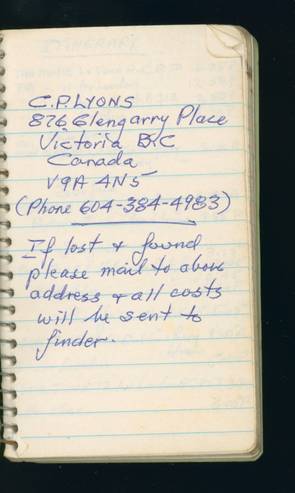 C.P. LYONS
876 Glengarry Place
Victoria B.C
Canada
V9A 4N5
(Phone 604-384-4983)
If lost & found
please mail to above
address & all costs
will be sent to
finder.